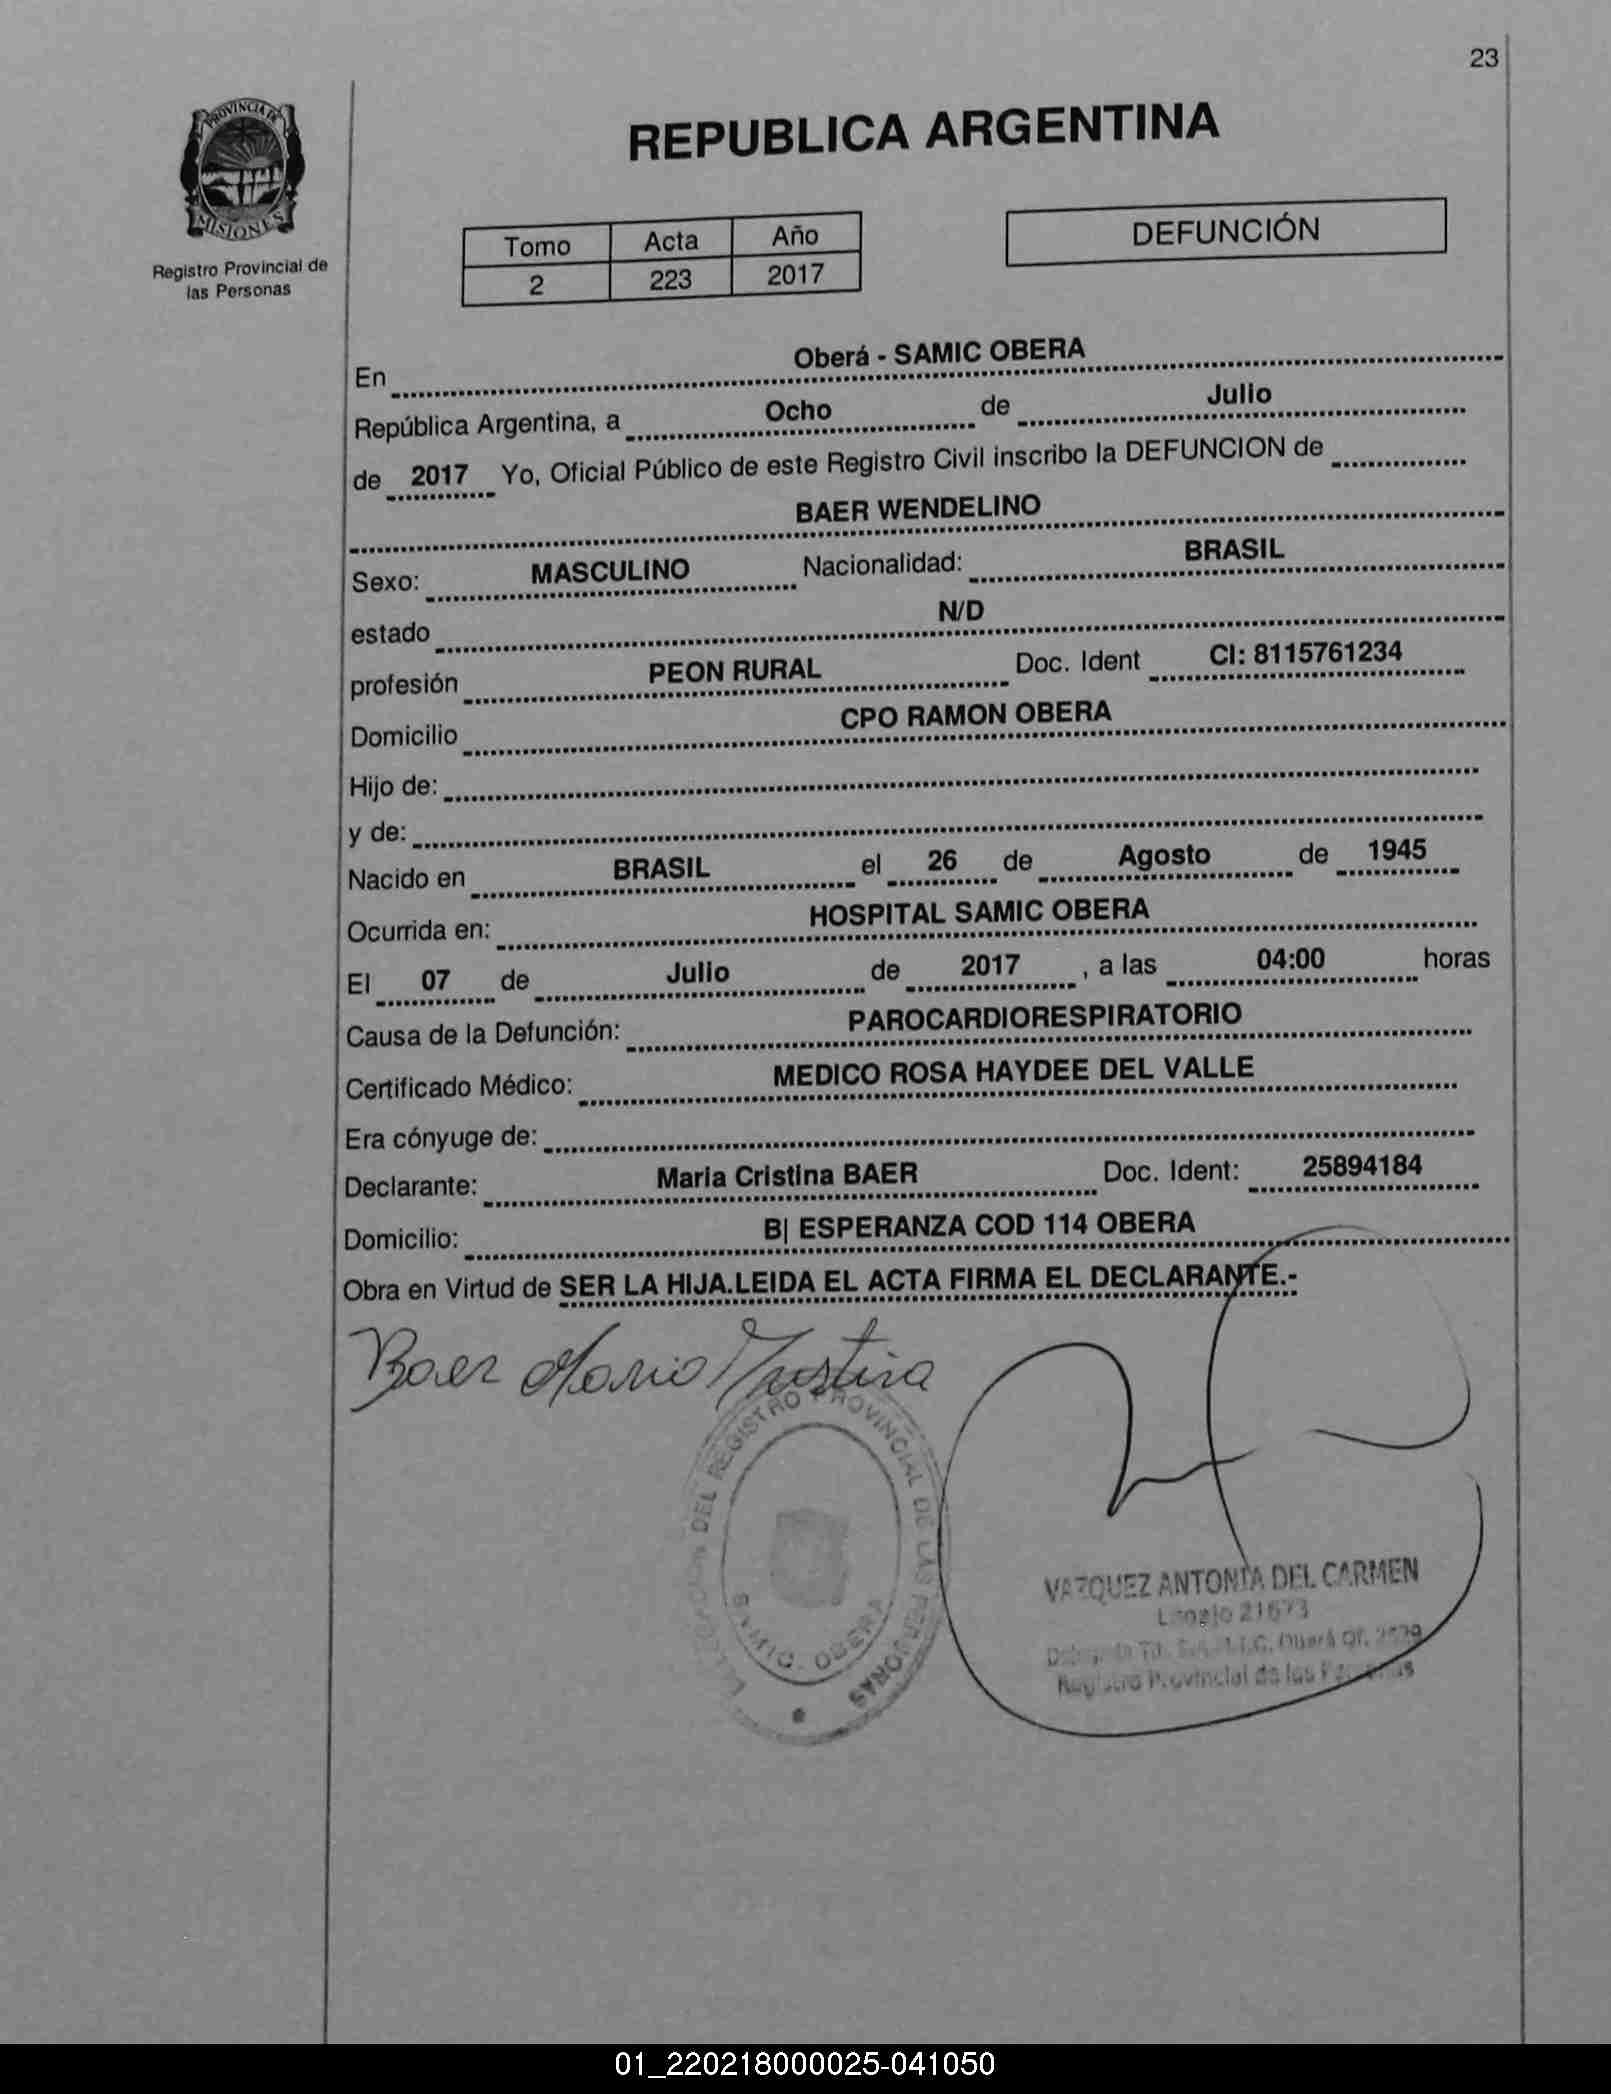 23
PROVINCIA DE
MISIONES
Registro Provincial de
las Personas
REPUBLICA ARGENTINA
Tomo Acta Año
2 223 2017
DEFUNCIÓN
En Oberá - SAMIC OBERA
República Argentina, a Ocho de Julio
de 2017 Yo, Oficial Público de este Registro Civil inscribo la DEFUNCION de
BAER WENDELINO
Sexo: MASCULINO Nacionalidad: BRASIL
estado N/D
profesión PEON RURAL Doc. Ident CI: 8115761234
Domicilio CPO RAMON OBERA
Hijo de:
y de:
Nacido en BRASIL el 26 de Agosto de 1945
Ocurrida en: HOSPITAL SAMIC OBERA
El 07 de Julio de 2017 , a las 04:00 horas
Causa de la Defunción: PAROCARDIORESPIRATORIO
Certificado Médico: MEDICO ROSA HAYDEE DEL VALLE
Era cónyuge de:
Declarante: Maria Cristina BAER Doc. Ident: 25894184
Domicilio: B| ESPERANZA COD 114 OBERA
Obra en Virtud de SER LA HIJA.LEIDA EL ACTA FIRMA EL DECLARANTE.-
Baer Maria Cristina
DEL REGISTRO PROVINCIAL DE LAS PERSONAS
SAMIC. OBERA
VAZQUEZ ANTONIA DEL CARMEN
Legajo 21673
Registro Provincial de las Personas
01_220218000025-041050